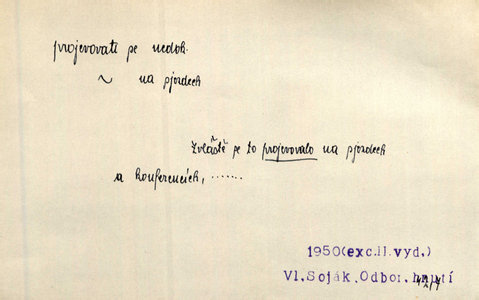 projevovati se nedok.
~ na sjezdech
Zvláště se to projevovalo na sjezdech
a konferencích, .......
1950(exc.II.vyd.)
Vl.Soják,Odbor.hnutí